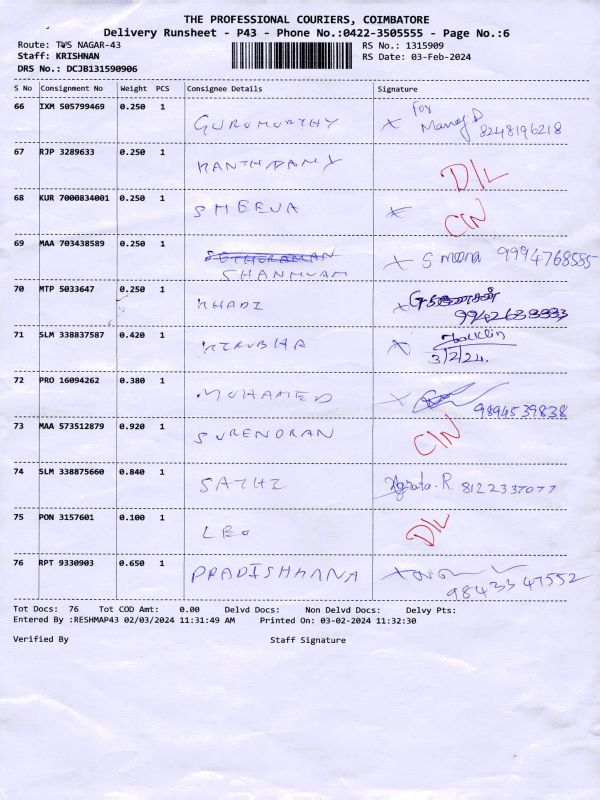 THE PROFESSIONAL COURIERS, COIMBATORE
Delivery Runsheet - P43 - Phone No.:0422-3505555 - Page No.:6
Route: TVS NAGAR-43 RS No.: 1315909
Staff: KRISHNAN RS Date: 03-Feb-2024
DRS No.: DCJB131590906
S No Consignment No Weight PCS Consignee Details Signature
66 IXM 505799469 0.250 1 GURUMURTHY X For Manoj D 8248196218
67 RJP 3289633 0.250 1 D/L
68 KUR 7000834001 0.250 1 SHEEVA X C/N
69 MAA 703438589 0.250 1 SETHURAMAN X S meena 9994768585
SHANMUAM
70 MTP 5033647 0.250 1 KHADI X
71 SLM 338837587 0.420 1 KIRUBHA X
3/2/24.
72 PRO 16094262 0.380 1 MUHAMED X 9894539838
73 MAA 573512879 0.920 1 SURENDRAN C/N
74 SLM 338875660 0.840 1 SATHI R. 8122337077
75 PON 3157601 0.100 1 LEO D/L
76 RPT 9330903 0.650 1 PRADISHHANA X 9843347552
Tot Docs: 76 Tot COD Amt: 0.00 Delvd Docs: Non Delvd Docs: Delvy Pts:
Entered By :RESHMAP43 02/03/2024 11:31:49 AM Printed On: 03-02-2024 11:32:30
Verified By Staff Signature